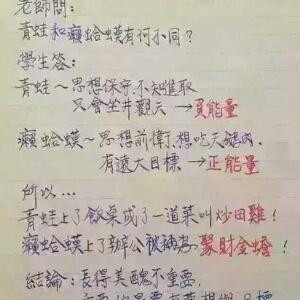 老師問：
青蛙和癩蛤蟆有何不同？
學生答：
青蛙～思想保守，不知進取
只會坐井觀天→負能量
癩蛤蟆～思想前衛，想吃天鵝肉，
有遠大目標→正能量
所以…
青蛙上了飯桌成了一道菜叫炒田雞！
癩蛤蟆上了辦公被稱為聚財金蟾！
結論：長得美醜不重要，